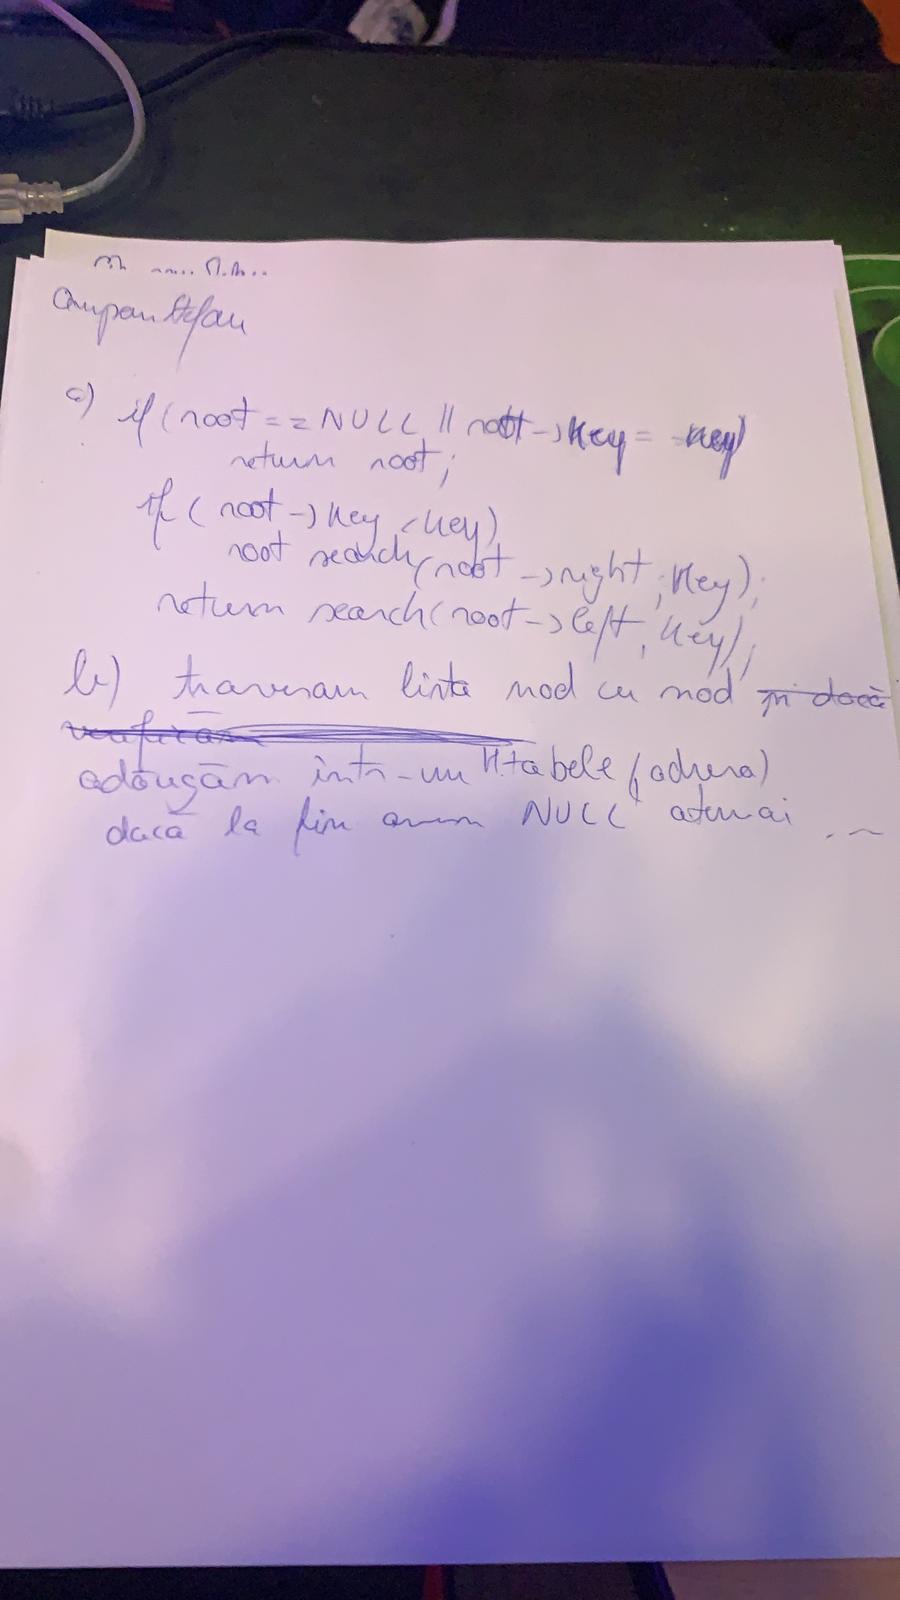 Ștefan
a) if (root == NULL || root -> key = key)
return root;
if (root -> key < key)
root search(root -> right, key);
return search(root -> left, key);
b) traversam lista nod cu nod și dacă
adăugăm într-un H.tabele (adresa)
dacă la fin avem NULL atunci ...